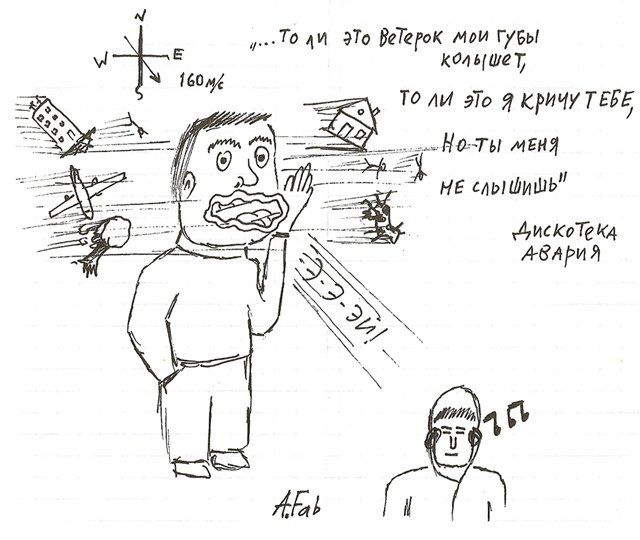 N
W E
S
160 м/с
„...то ли это ветерок мои губы
колышет,
то ли это я кричу тебе,
Но ты меня
не слышишь"
Дискотека
Авария
A.Fab